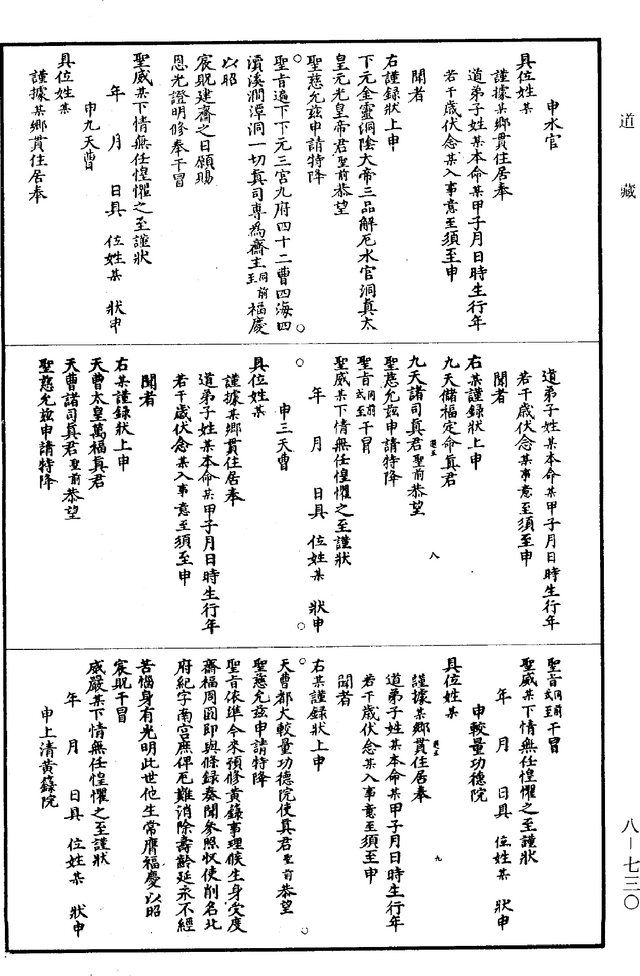 道藏
申水官
具位姓某
謹據某鄉貫住居奉
道弟子姓某本命某甲子月日時生行年
若干歲伏念某入事意至須至申
聞者
右謹錄狀上申
下元金靈洞陰大帝三品解厄水官洞真太
皇元光皇帝君聖前恭望
聖慈允茲申請特降
聖旨遍下下元三宮九府四十二曹四海四
瀆溪澗潭洞一切真司專為齋主至同前福慶
以昭
宸貺建齋之日願賜
恩光證明修奉干冒
聖威某下情無任惶懼之至謹狀
年 月 日具 位姓某 狀申
申九天曹
具位姓某
謹據某鄉貫住居奉
道弟子姓某本命某甲子月日時生行年
若干歲伏念某事意至須至申
聞者
右某謹錄狀上申
九天儲福定命真君
九天諸司真君聖前恭望
聖慈允茲申請特降
聖旨同前式至干冒
聖威某下情無任惶懼之至謹狀
年 月 日具 位姓某 狀申
申三天曹
具位姓某
謹據某鄉貫住居奉
道弟子姓某本命某甲子月日時生行年
若干歲伏念某入事意至須至申
聞者
右某謹錄狀上申
天曹太皇萬福真君
天曹諸司真君聖前恭望
聖慈允茲申請特降
聖旨同前式至干冒
聖威某下情無任惶懼之至謹狀
年 月 日具 位姓某 狀申
申較量功德院
具位姓某
謹據某鄉貫住居奉
道弟子姓某本命某甲子月日時生行年
若干歲伏念某入事意至須至申
聞者
右某謹錄狀上申
天曹都大較量功德院使真君聖前恭望
聖慈允茲申請特降
聖旨依準今來預修黃籙事理候生身受度
齋福周圓即與條錄奏聞參照怳使削名北
府紀字南宮庶俾厄難消除壽齡延永不經
苦惱身有光明此世他生常膺福慶以昭
宸貺干冒
威嚴某下情無任惶懼之至謹狀
年 月 日具 位姓某 狀申
申上清黃籙院
八
九
八－七三〇